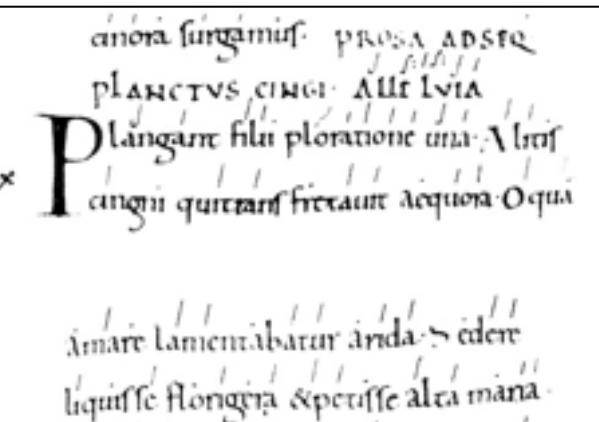 canora surgamus. PROSA AD SEQ
PLANCTVS CINGI. ALLE LVIA
Plangant filii ploratione una. Alitis
cingni qui transfretauit aequora. O qua
amare lamentabatur arida. edere
liquisse florigera & petisse alta maria.